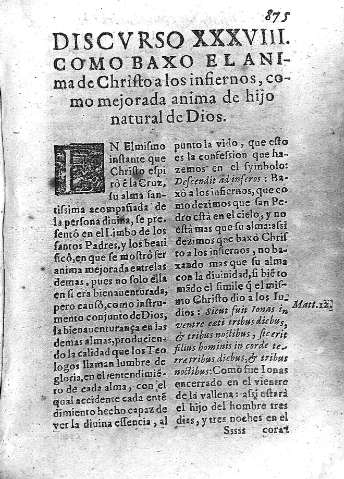 875
DISCVRSO XXXVIII.
COMO BAXO EL ANI-
ma de Christo a los infiernos, co-
mo mejorada anima de hijo
natural de Dios.
EN El mismo
instante que
Christo espi
rò ẽ la Cruz,
su alma san-
tissima acompañada de
la persona diuina, se pre-
sentò en el Limbo de los
santos Padres, y los beati
ficò, en que se mostrò ser
anima mejorada entre las
demas, pues no solo ella
en si era bienauenturada,
pero causò, como instru-
mento conjunto de Dios,
la bienauenturança en las
demas almas, producien-
do la calidad que los Teo
logos llaman lumbre de
gloria, en el entendimiẽ-
to de cada alma, con el
qual accidente cada entẽ
dimiento hecho capaz de
ver la diuina essencia, al
punto la vido, que esto
es la confession que ha-
zemos en el symbolo:
Descendit ad inferos: Ba-
xò a los infiernos, que co
mo dezimos que san Pe-
dro està en el cielo, y no
està mas que su alma: assi
dezimos que baxò Christo
a los infiernos, no ba-
xando mas que su alma
con la diuinidad, si biẽ to
mado el simile q̃ el mis-
mo Christo dio a los Iu-
dios: Sicut fuit Ionas in
ventre ceti tribus diebus,
& tribus noctibus, sic erit
filius hominis in corde te-
rræ tribus diebus, & tribus
noctibus: Como fue Ionas
encerrado en el vientre
de la vallena: assi estarà
el hijo del hombre tres
dias, y tres noches en el
Matt. 12.
Sssss coraz